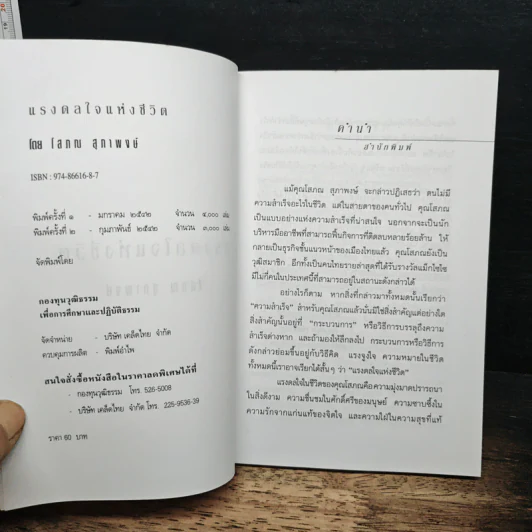 แรงดลใจแห่งชีวิต
โดย โสภณ สุภาพงษ์
ISBN : 974-86616-8-7
พิมพ์ครั้งที่ ๑ - มกราคม ๒๕๔๒ จำนวน ๔,๐๐๐ เล่ม
พิมพ์ครั้งที่ ๒ - กุมภาพันธ์ ๒๕๔๒ จำนวน ๓,๐๐๐ เล่ม
จัดพิมพ์โดย
กองทุนวุฒิธรรม
เพื่อการศึกษาและปฏิบัติธรรม
จัดจำหน่าย - บริษัท เคล็ดไทย จำกัด
ควบคุมการผลิต - พิมพ์อำไพ
สนใจสั่งซื้อหนังสือในราคาลดพิเศษได้ที่
- กองทุนวุฒิธรรม โทร. 526-5008
- บริษัท เคล็ดไทย จำกัด โทร. 225-9536-39
ราคา 60 บาท
คำนำ
สำนักพิมพ์
แม้คุณโสภณ สุภาพงษ์ จะกล่าวปฏิเสธว่า ตนไม่มี
ความสำเร็จอะไรในชีวิต แต่ในสายตาของคนทั่วไป คุณโสภณ
เป็นแบบอย่างแห่งความสำเร็จที่น่าสนใจ นอกจากจะเป็นนัก
บริหารมืออาชีพที่สามารถฟื้นกิจการที่ติดลบหลายร้อยล้าน ให้
กลายเป็นธุรกิจชั้นแนวหน้าของเมืองไทยแล้ว คุณโสภณยังเป็น
วุฒิสมาชิก อีกทั้งเป็นคนไทยรายล่าสุดที่ได้รับรางวัลแม็กไซไซ
มีไม่กี่คนในประเทศนี้ที่สามารถอยู่ในสถานะดังกล่าวได้
อย่างไรก็ตาม หากสิ่งที่กล่าวมาทั้งหมดนั้นเรียกว่า
“ความสำเร็จ” สำหรับคุณโสภณแล้วนั่นมิใช่สิ่งสำคัญแต่อย่างใด
สิ่งสำคัญนั้นอยู่ที่ “กระบวนการ” หรือวิธีการบรรลุถึงความ
สำเร็จต่างหาก และถ้ามองให้ลึกลงไป กระบวนการหรือวิธีการ
ดังกล่าวย่อมขึ้นอยู่กับวิธีคิด แรงจูงใจ ความหมายในชีวิต
ทั้งหมดนี้เราอาจเรียกได้สั้นๆ ว่า “แรงดลใจแห่งชีวิต”
แรงดลใจในชีวิตของคุณโสภณคือความมุ่งมาดปรารถนา
ในสิ่งดีงาม ความชื่นชมในศักดิ์ศรีของมนุษย์ ความซาบซึ้งใน
ความรักจากแก่นแท้ของจิตใจ และความใฝ่ในความสุขที่แท้